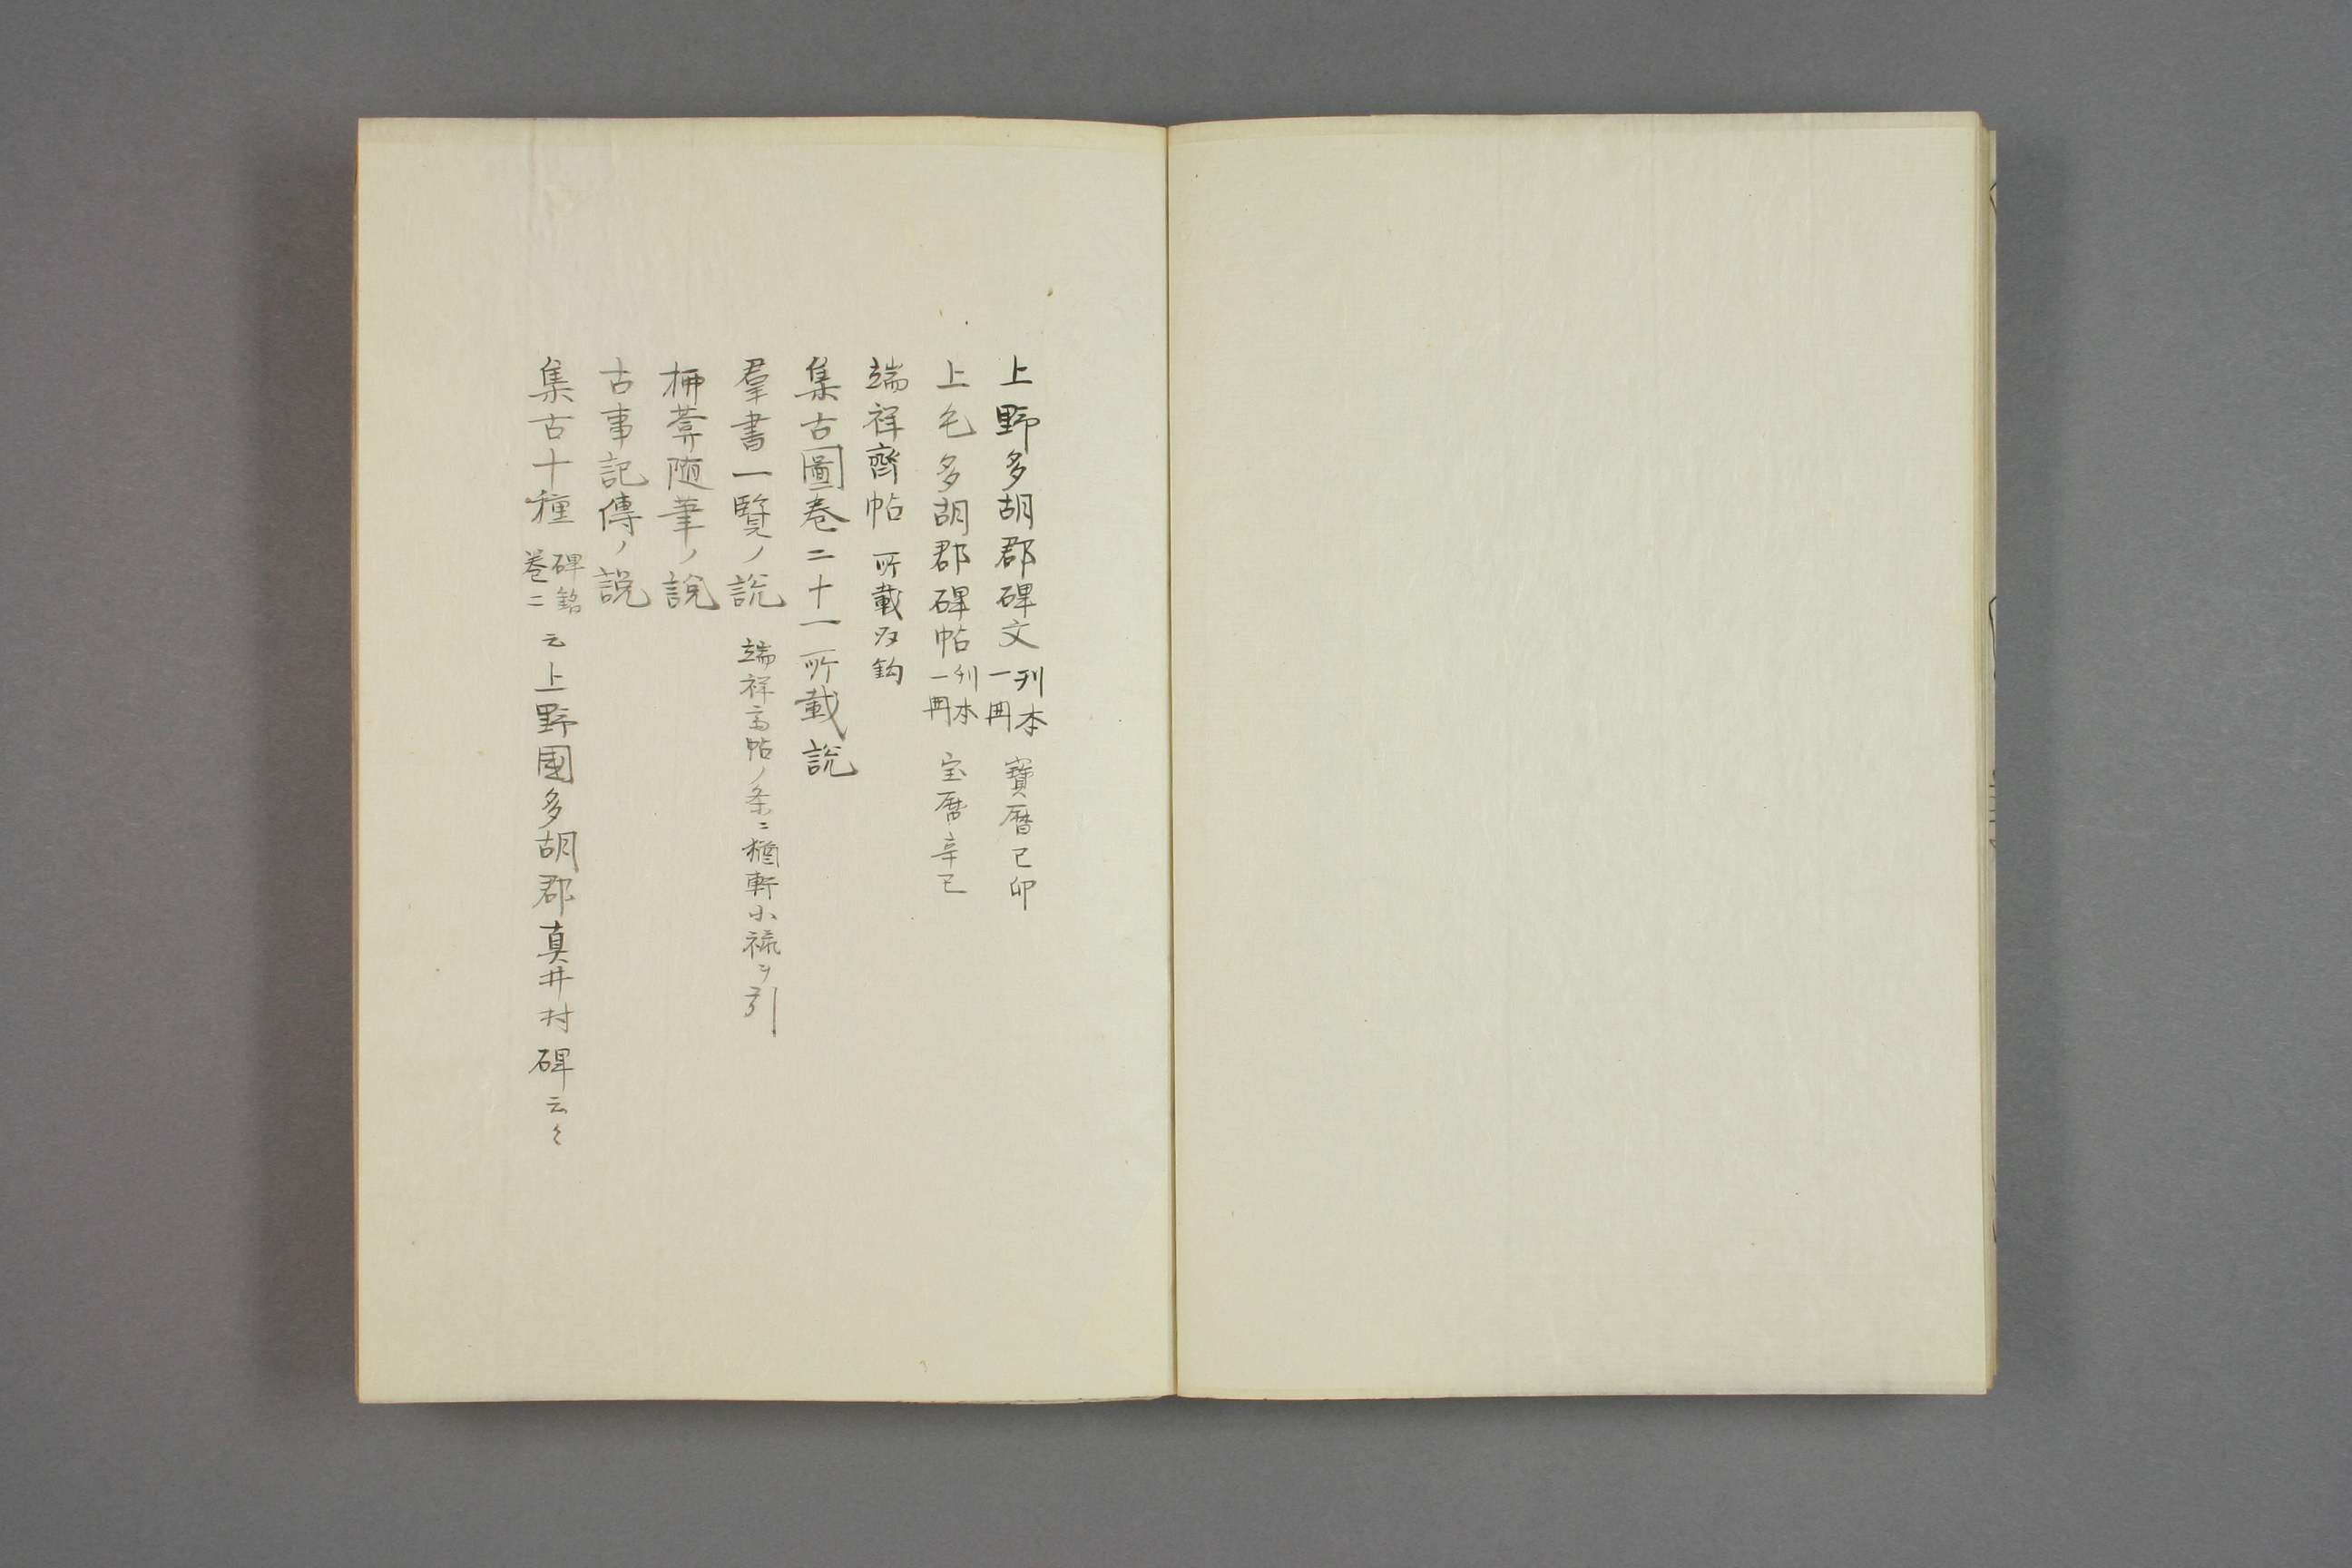 上野多胡郡碑文 刊本一冊 寶暦己卯
上毛多胡郡碑帖 刊本一冊 宝暦辛巳
端祥齊帖 所載双鈎
集古圖卷二十一所載説
羣書一覧ノ説 端祥斎帖ノ条ニ楢軒小祿ヲ引
楓葊随筆ノ説
古事記傳ノ説
集古十種 碑銘卷二 云上野國多胡郡真井村碑云々